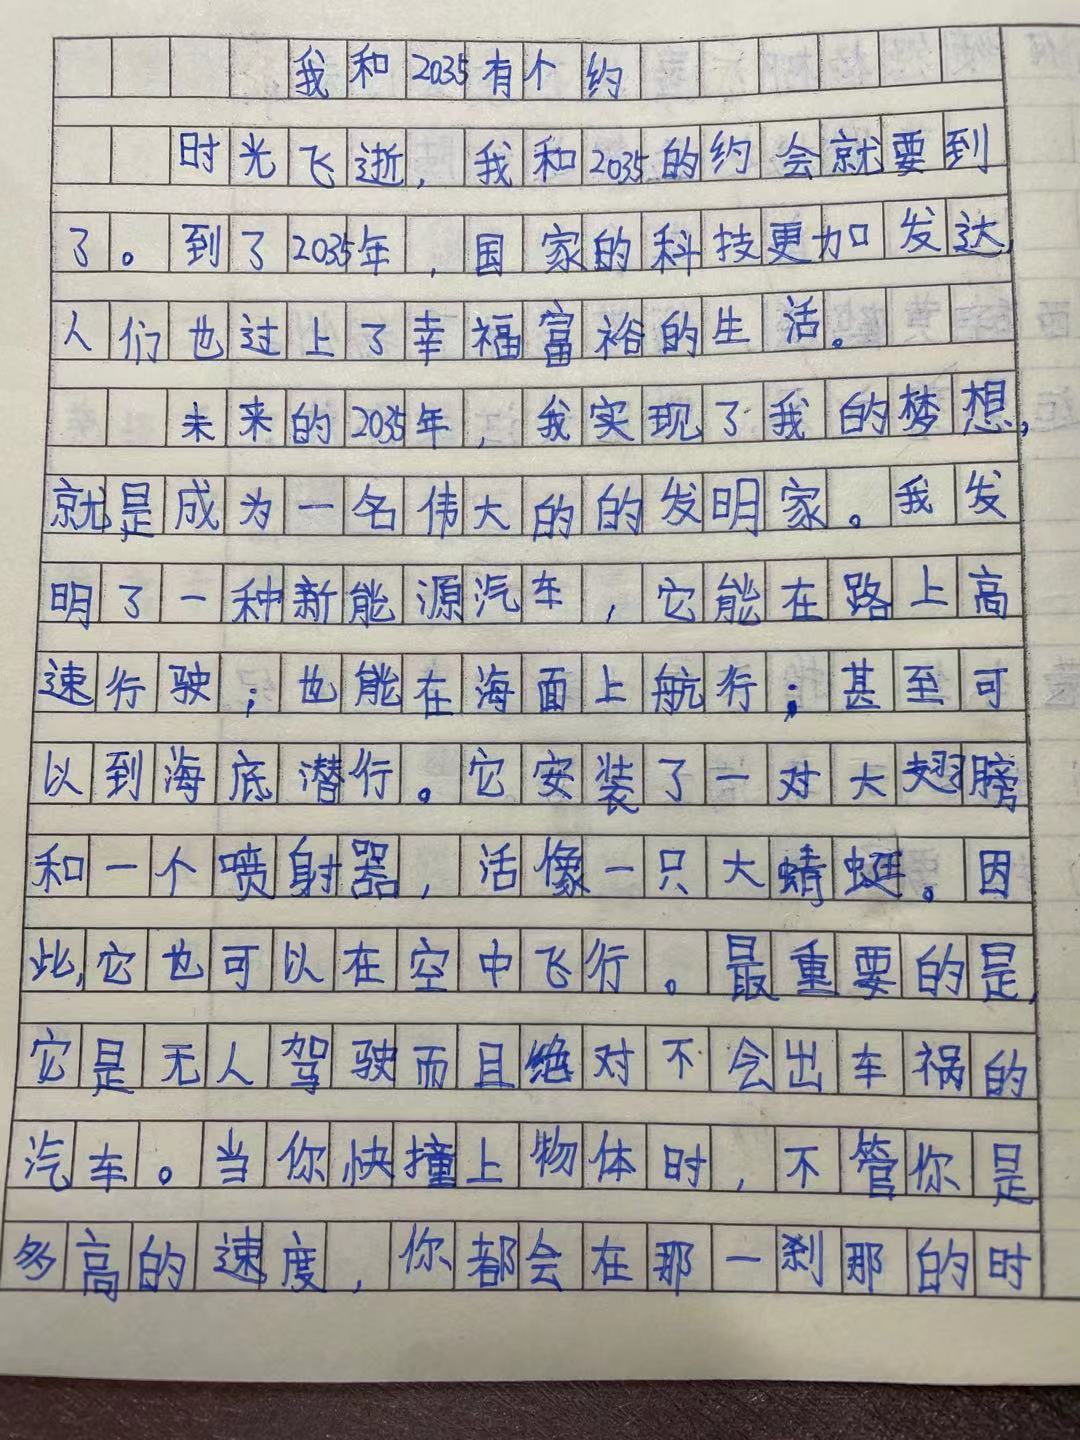 我和2035有个约
时光飞逝，我和2035的约会就要到
了。到了2035年，国家的科技更加发达，
人们也过上了幸福富裕的生活。
未来的2035年，我实现了我的梦想，
就是成为一名伟大的的发明家。我发
明了一种新能源汽车，它能在路上高
速行驶；也能在海面上航行；甚至可
以到海底潜行。它安装了一对大翅膀
和一个喷射器，活像一只大蜻蜓。因
此，它也可以在空中飞行。最重要的是，
它是无人驾驶而且绝对不会出车祸的
汽车。当你快撞上物体时，不管你是
多高的速度，你都会在那一刹那的时